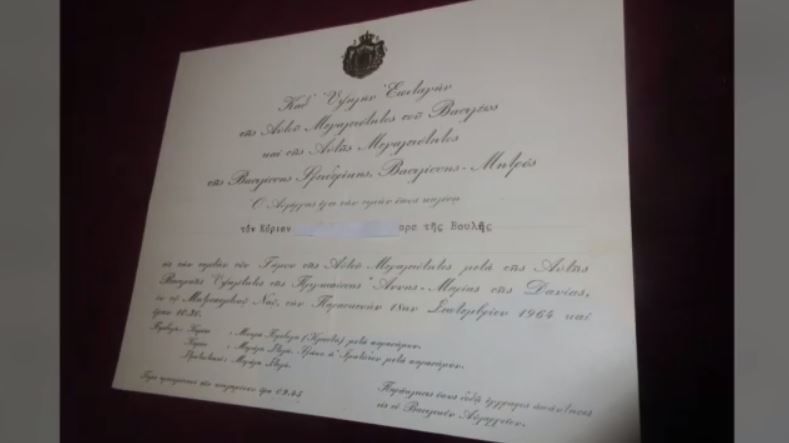 Καθ' Ὑψηλὴν Ἐπιταγὴν
τῆς Αὐτοῦ Μεγαλειότητος τοῦ Βασιλέως
καὶ τῆς Αὐτῆς Μεγαλειότητος
τῆς Βασιλίσσης Φρειδερίκης, Βασιλίσσης-Μητρός
Ὁ Αὐλάρχης ἔχει τὴν τιμὴν ὅπως καλέση
τὸν Κύριον τῆς Βουλῆς
εἰς τὴν τελετὴν τῶν Γάμων τῆς Αὐτοῦ Μεγαλειότητος μετὰ τῆς Αὐτῆς
Βασιλικῆς Ὑψηλότητος τῆς Πριγκιπίσσης Ἄννης-Μαρίας τῆς Δανίας,
ἐν τῷ Μητροπολιτικῷ Ναῷ, τὴν Παρασκευὴν 18ην Σεπτεμβρίου 1964 καὶ
ὥραν 10.30.
Κύριοι : μετὰ παρασήμων.
Κυρίαι : Μεγάλη Στολὴ. μετὰ παρασήμων.
Στρατιωτικοὶ : Μεγάλη Στολή.
ὥρα 09.45
Παράκλησις ὅπως δοθῇ ἔγγραφος ἀπάντησις
εἰς τὸ Βασιλικὸν Αὐλαρχεῖον.